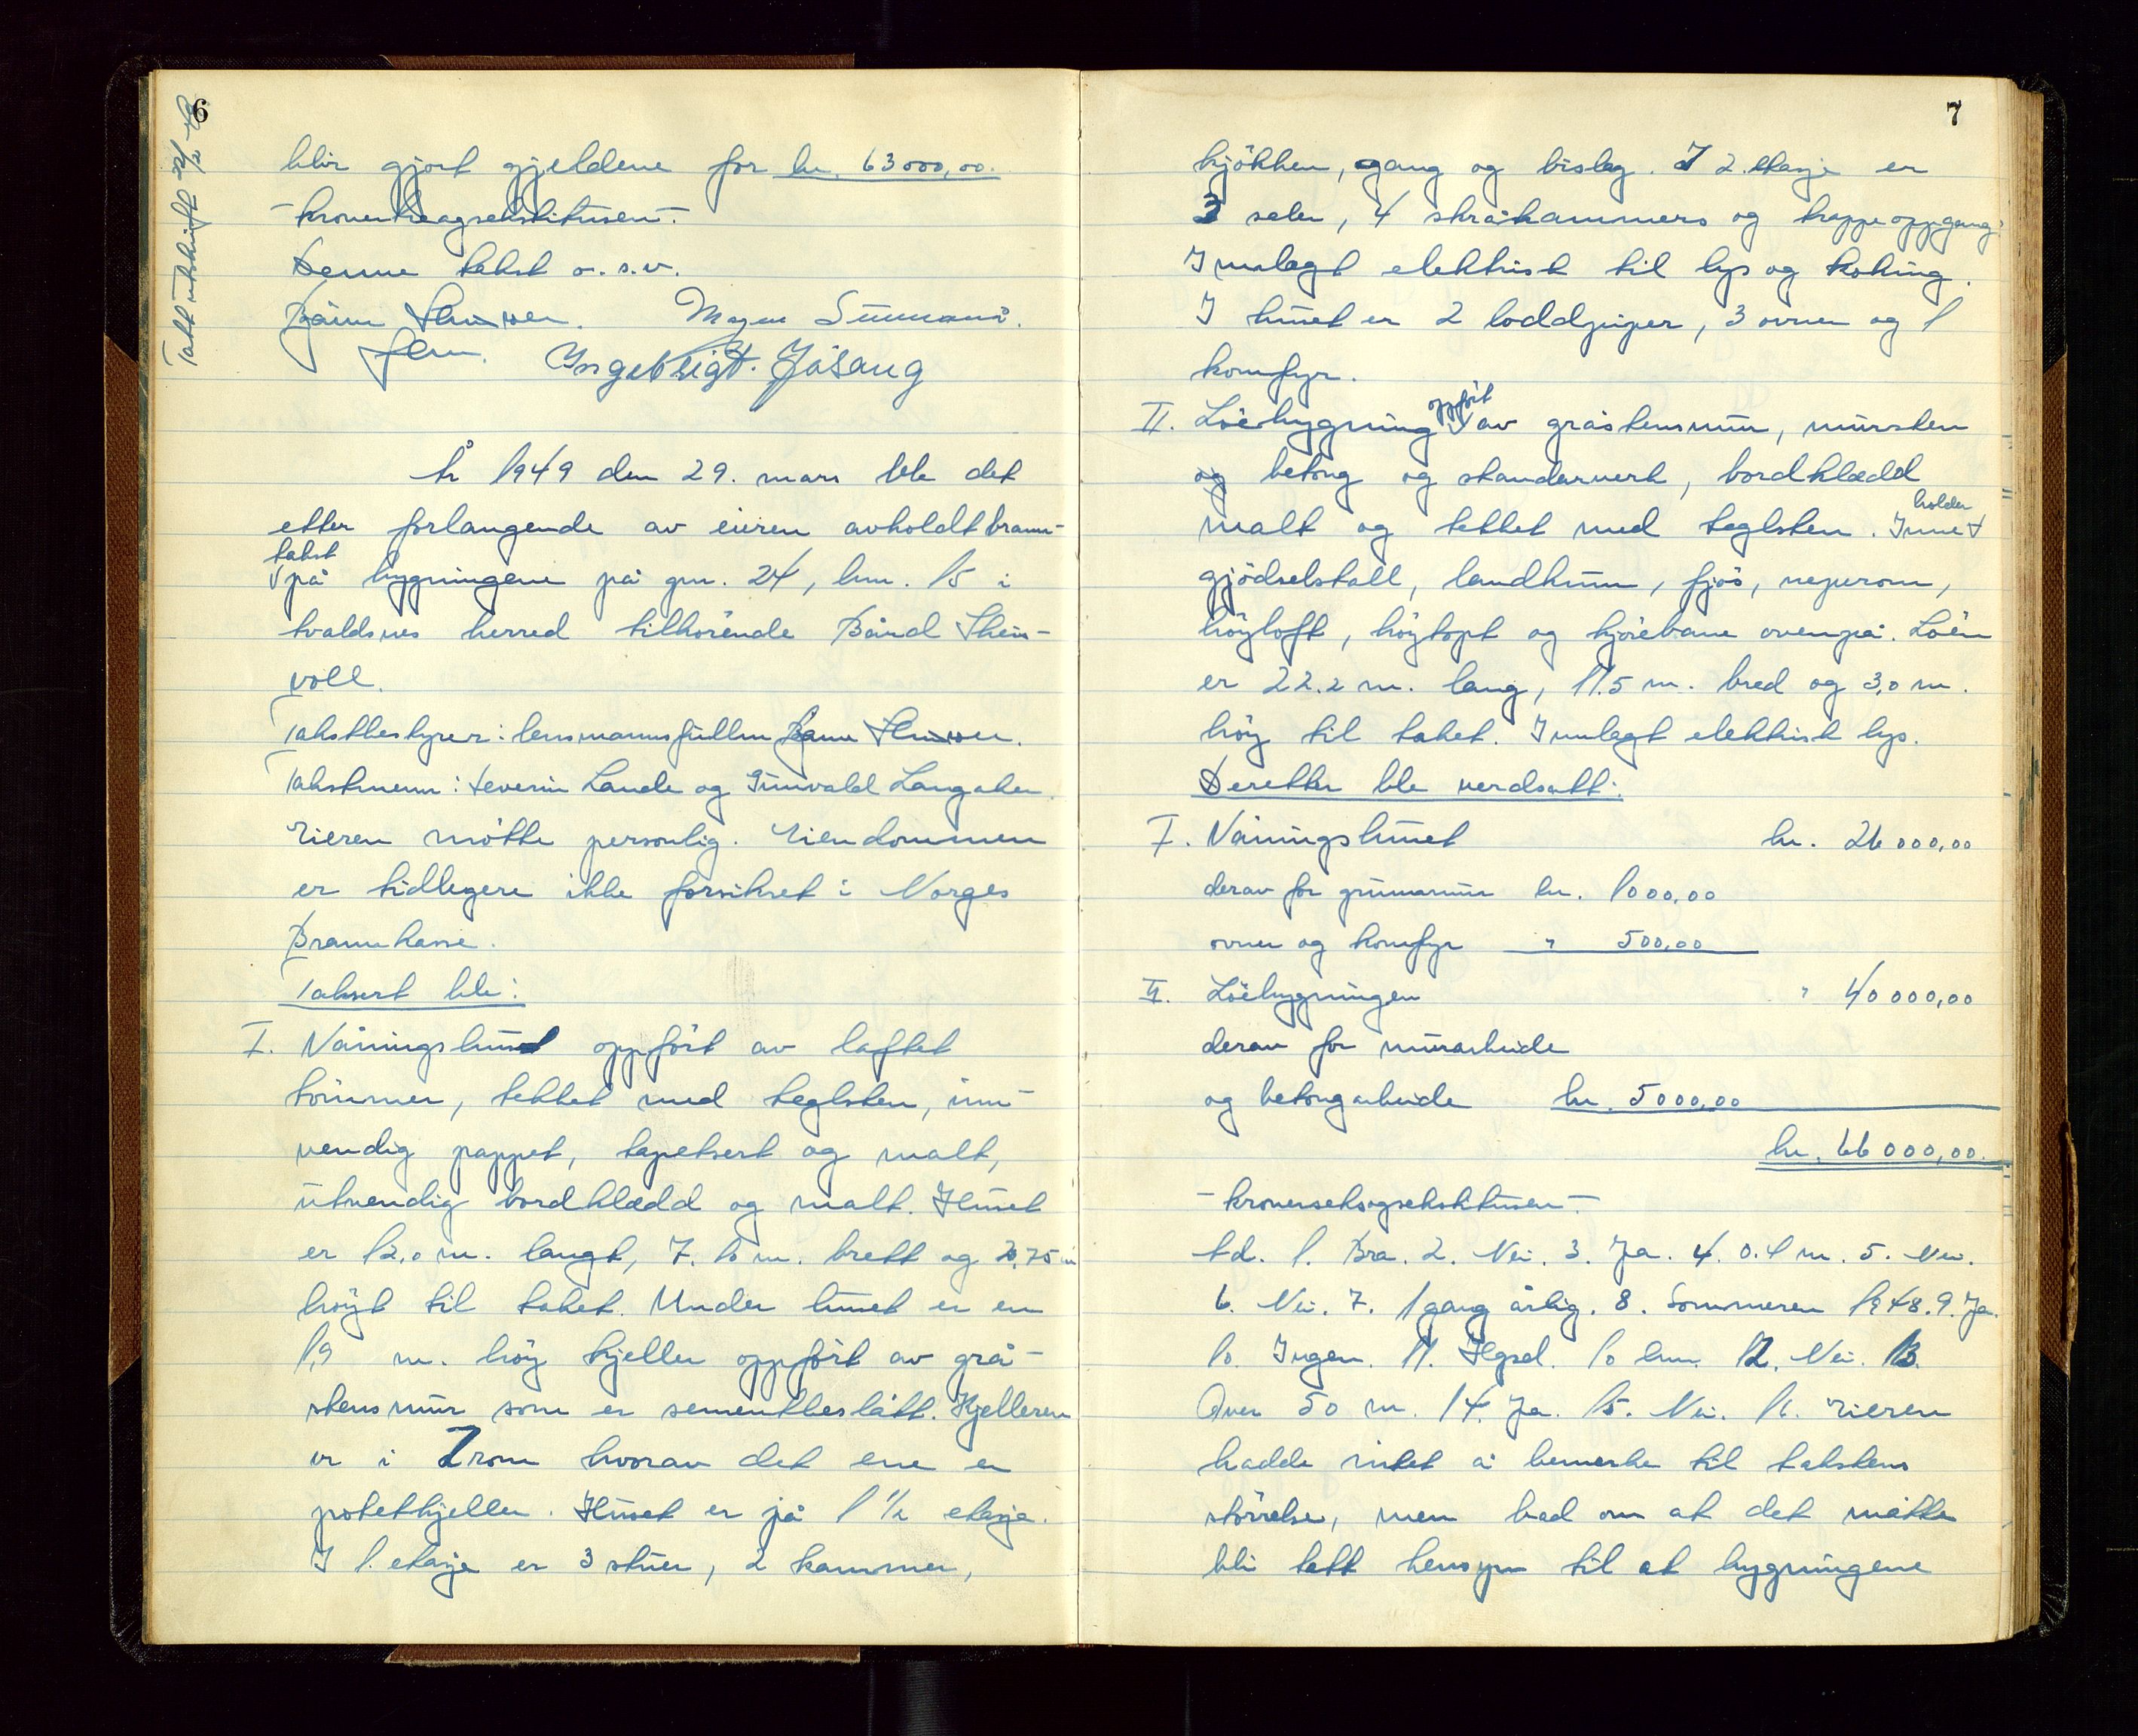 6
Tatt utskrift
blir gjort gjeldene for kr. 63000,00.
- kronertreogsekstitusen -.
Denne takst o.s.v.
Ingebrigt. Jøsang
År 1949 den 29. mars ble det
etter forlangende av eieren avholdt brann-
takst
på bygningene på gnr. 24, bnr. 15 i
Avaldsnes herred tilhørende Bård Stens-
voll.
Takstbestyrer: lensmannsfullm
Takstmenn: Severin Lande og Gunvald Langaker.
Eieren møtte personlig. Eiendommen
er tidlegere ikke forsikret i Norges
Brannkasse.
Taksert ble:
I. Våningshuset oppført av laftet
tømmer, tekket med teglsten, inn-
vendig pappet, tapetsert og malt,
utvendig bordklædd og malt. Huset
er 12,0 m. langt, 7.10 m. brett og 3,75 m
høyt til taket. Under huset er en
1,9 m. høy kjeller oppført av grå-
stensmur som er sementbeslått. Kjelleren
er i 2 rom hvorav det ene er
potetkjeller. Huset er på 1 1/2 etasje.
I 1. etasje er 3 stuer, 2 kammer,
7
kjøkken, gang og bislag. I 2. etasje er
3 saler, 4 skråkammers og trappeoppgang.
Innlagt elektrisk til lys og koking.
I huset er 2 loddpiper, 3 ovner og 1
komfyr.
II. Løebygning oppført av gråstensmur, mursten
og betong og standerverk, bordklædd
malt og tekket med teglsten. Inneholder
gjødselstall, landkum, fjøs, neperom,
høyloft, høytopt og kjørebane ovenpå. Løen
er 22.2 m. lang, 11.5 m. bred og 3,0 m.
høy til taket. Innlagt elektrisk lys.
Deretter ble verdsatt:
I. Våningshuset kr. 26000,00
derav for grunnmur kr. 1000,00
ovner og komfyr " 500,00
II. Løebygningen " 40000,00
derav for murarbeide
og betongarbeide kr. 5000,00
kr. 66000,00.
- kronerseksogsekstitusen -.
Ad. 1. Bra. 2. Nei. 3. Ja. 4. 0.1 m. 5. Nei.
6. Nei. 7. 1 gang årlig. 8. Sommeren 1948. 9. Ja.
10. Ingen. 11. Hgsd. 10 km. 12. Nei. 13.
Over 50 m. 14. Ja. 15. Nei. 16. Eieren
hadde intet å bemerke til takstens
størrelse, men bad om at det måtte
bli tatt hensyn til at bygningene